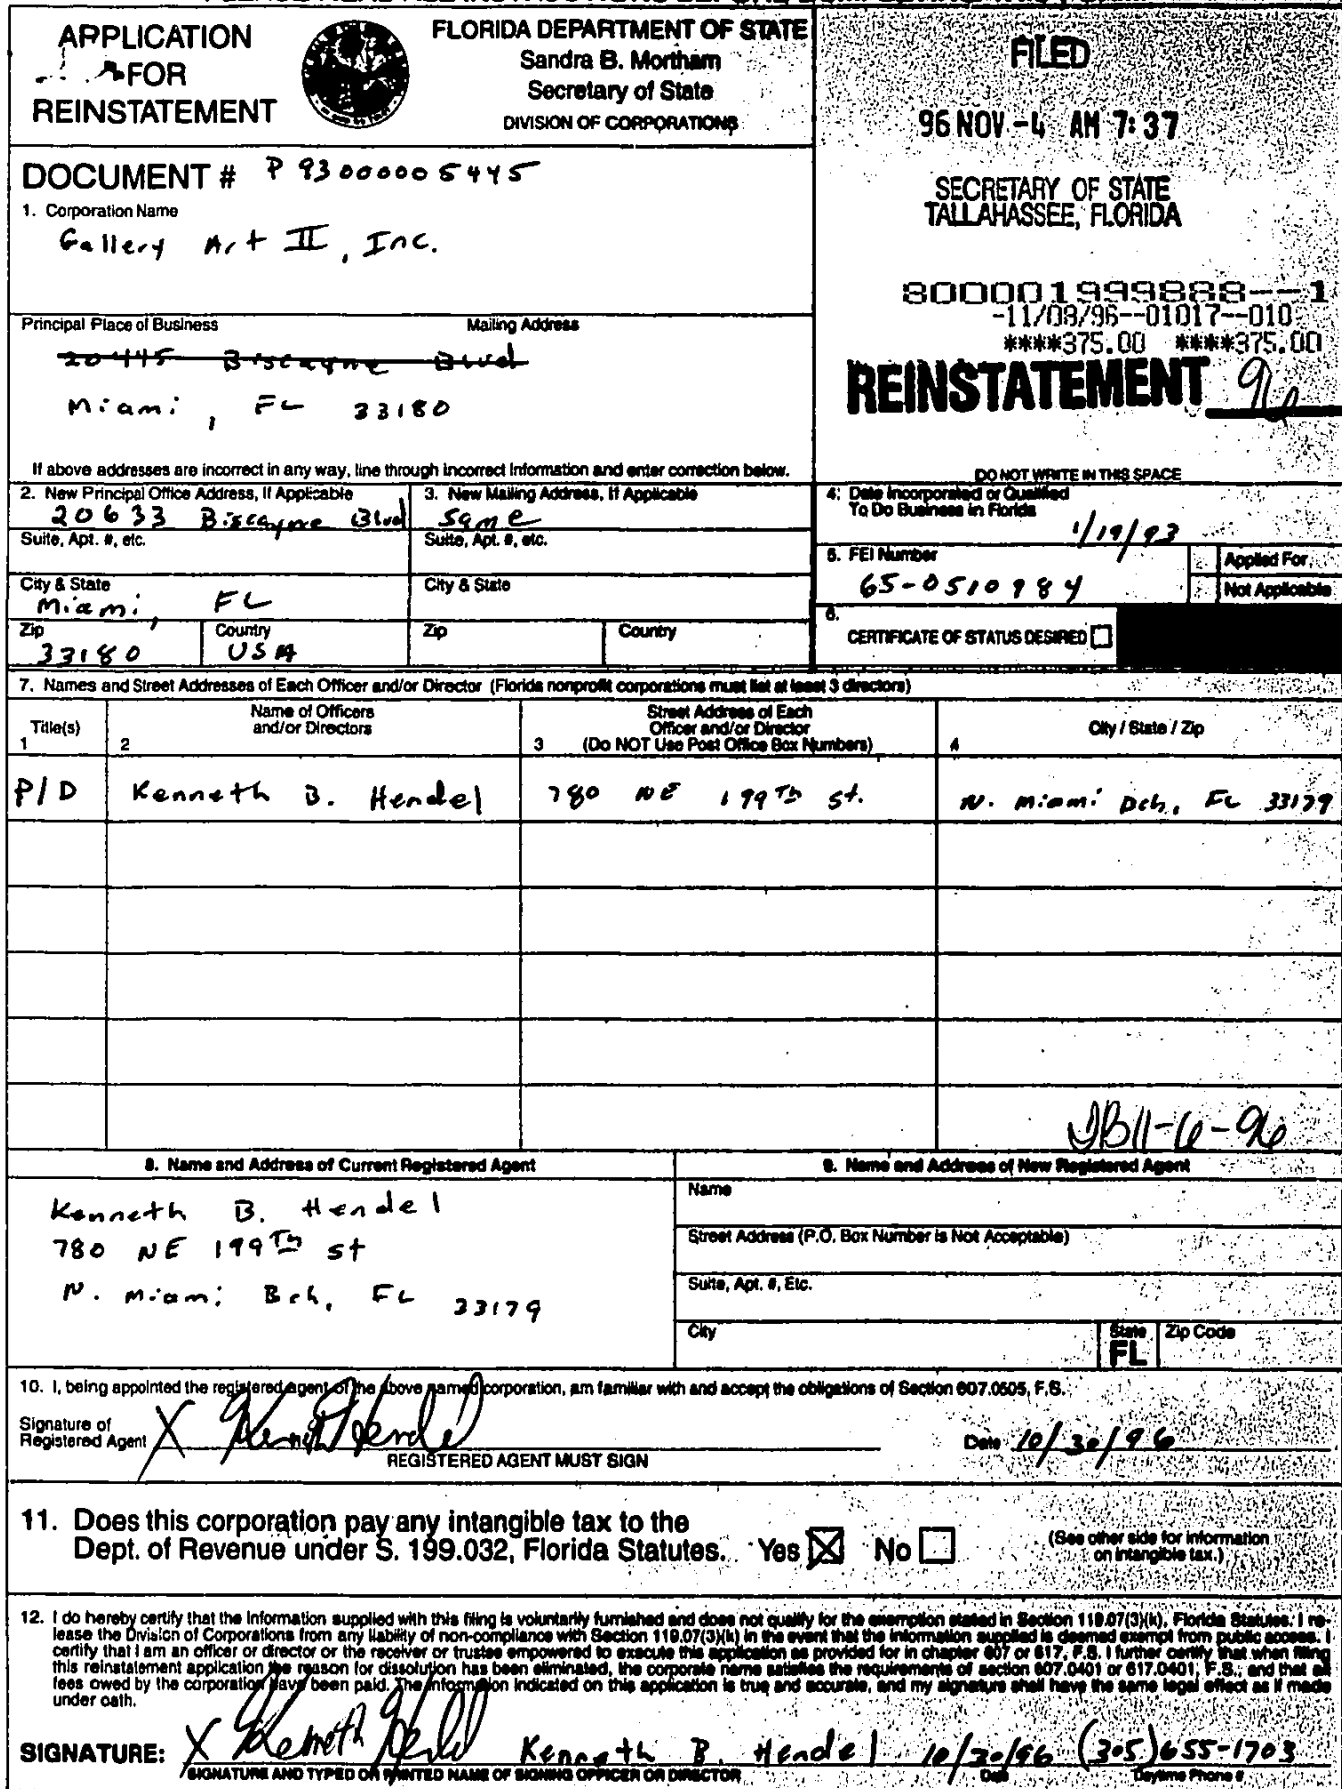 APPLICATION
FOR
REINSTATEMENT
FLORIDA DEPARTMENT OF STATE
Sandra B. Mortham
Secretary of State
DIVISION OF CORPORATIONS
FILED
96 NOV -4 AM 7:37
SECRETARY OF STATE
TALLAHASSEE, FLORIDA
800001999888--1
-11/08/96--01017--010
****375.00 ****375.00
REINSTATEMENT 96
DO NOT WRITE IN THIS SPACE
DOCUMENT # P93000005445
1. Corporation Name
Gallery Art II, Inc.
Principal Place of Business Mailing Address
20445 Biscayne Blvd
Miami, FL 33180
If above addresses are incorrect in any way, line through incorrect information and enter correction below.
2. New Principal Office Address, If Applicable
20633 Biscayne Blvd
3. New Mailing Address, If Applicable
Same
4. Date Incorporated or Qualified
To Do Business in Florida
1/19/93
Suite, Apt. #, etc. Suite, Apt. #, etc.
5. FEI Number
65-0510984
Applied For
Not Applicable
City & State
Miami, FL
City & State
6.
CERTIFICATE OF STATUS DESIRED
Zip
33180
Country
USA
Zip Country
7. Names and Street Addresses of Each Officer and/or Director (Florida nonprofit corporations must list at least 3 directors)
Title(s)
1
Name of Officers
and/or Directors
2
Street Address of Each
Officer and/or Director
3 (Do NOT Use Post Office Box Numbers)
City / State / Zip
4
P/D Kenneth B. Hendel 780 NE 199TH St. N. Miami Bch, FL 33179
JB 11-6-96
8. Name and Address of Current Registered Agent
Kenneth B. Hendel
780 NE 199TH St
N. Miami Bch, FL 33179
9. Name and Address of New Registered Agent
Name
Street Address (P.O. Box Number is Not Acceptable)
Suite, Apt. #, Etc.
City State FL Zip Code
10. I, being appointed the registered agent of the above named corporation, am familiar with and accept the obligations of Section 607.0505, F.S.
Signature of
Registered Agent X Kenneth Hendel Date 10/30/96
REGISTERED AGENT MUST SIGN
11. Does this corporation pay any intangible tax to the
Dept. of Revenue under S. 199.032, Florida Statutes. Yes X No
(See other side for information
on intangible tax.)
12. I do hereby certify that the information supplied with this filing is voluntarily furnished and does not qualify for the exemption stated in Section 119.07(3)(k), Florida Statutes. I re-
lease the Division of Corporations from any liability of non-compliance with Section 119.07(3)(k) in the event that the information supplied is deemed exempt from public access. I
certify that I am an officer or director or the receiver or trustee empowered to execute this application as provided for in chapter 607 or 617, F.S. I further certify that when filing
this reinstatement application the reason for dissolution has been eliminated, the corporate name satisfies the requirements of section 607.0401 or 617.0401, F.S., and that all
fees owed by the corporation have been paid. The information indicated on this application is true and accurate, and my signature shall have the same legal effect as if made
under oath.
SIGNATURE: X Kenneth Hendel Kenneth B. Hendel 10/30/96 (305)655-1703
SIGNATURE AND TYPED OR PRINTED NAME OF SIGNING OFFICER OR DIRECTOR Date Daytime Phone #